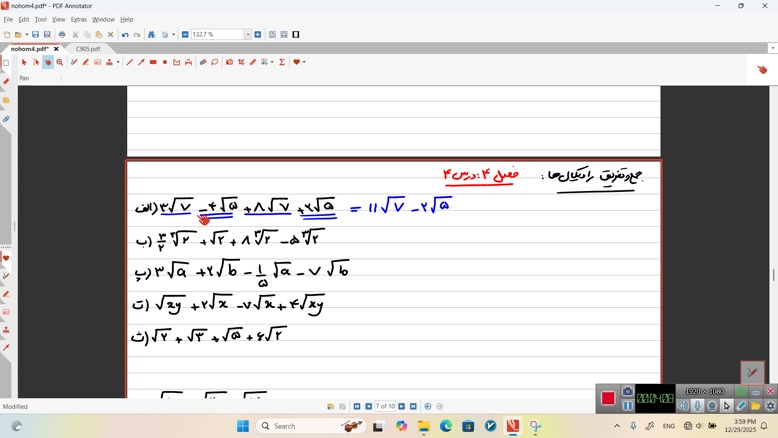 nohom4.pdf* - PDF Annotator
File Edit Tool View Extras Window Help
132.7 %
nohom4.pdf* C905.pdf
Pan
جمع و تفریق رادیکال‌ها : فصل ۴: درس ۴
الف) ۳√۷ - ۴√۵ + ۸√۷ + ۲√۵ = ۱۱√۷ - ۲√۵
ب) ۳/۲ ³√۲ + √۲ + ۸ ³√۲ - ۵ ³√۲
پ) ۳√a + ۲√b - ۱/۵ √a - ۷√b
ت) √xy + ۲√x - ۷√x + ۴√xy
ث) √۲ + √۳ + √۵ + ۶√۲
Modified
7 of 10
1920 × 1080
Search
ENG
3:59 PM
12/29/2025